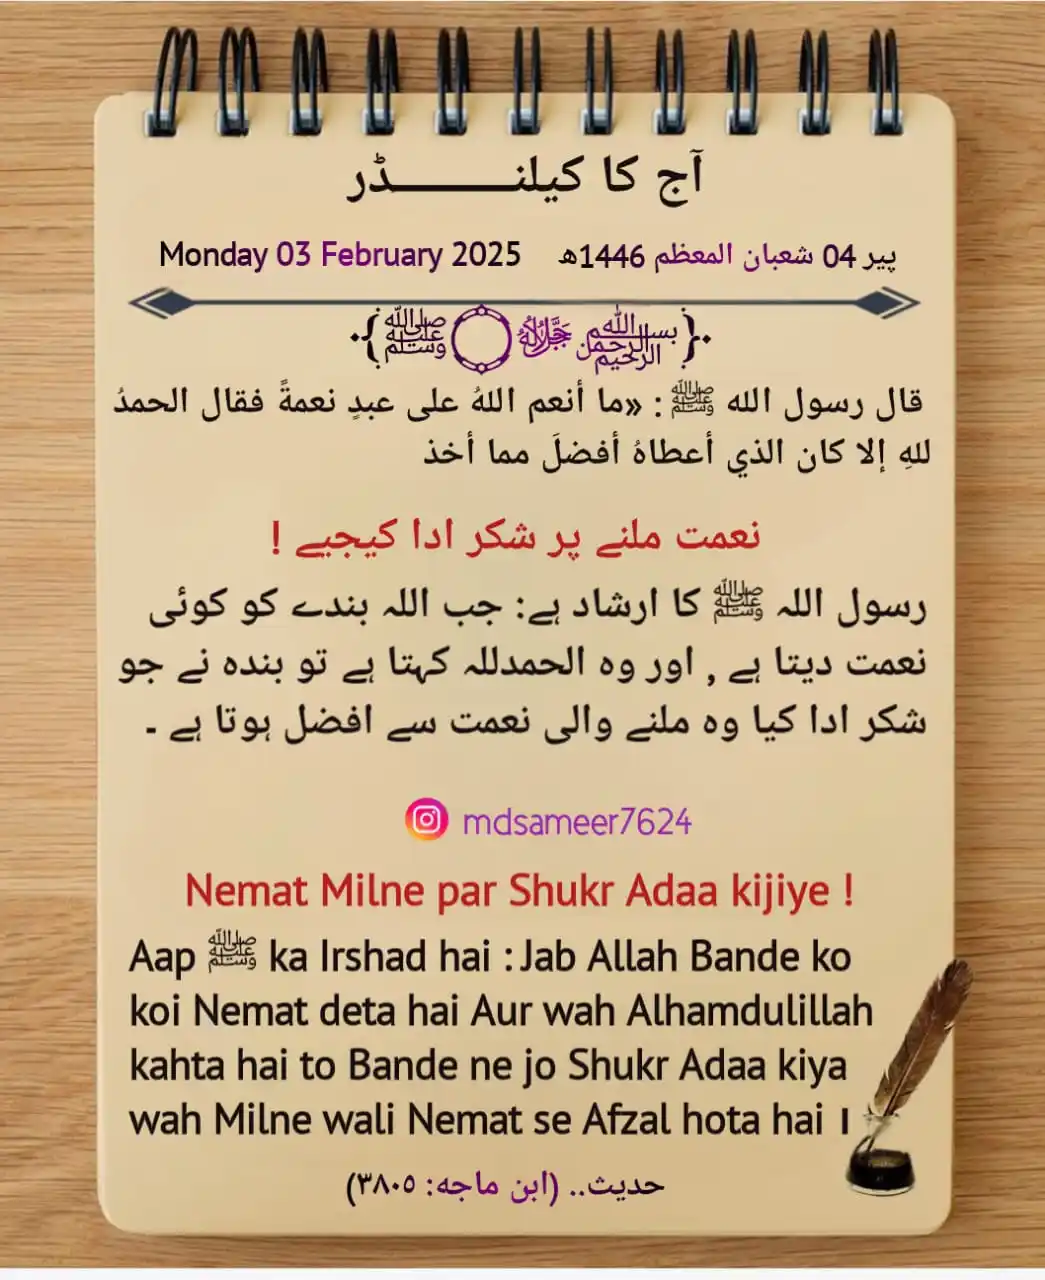 آج کا کیلنــــــــڈر
Monday 03 February 2025 پیر 04 شعبان المعظم 1446ھ
﷽ ﷻ ﷺ
قال رسول الله ﷺ : «ما أنعم اللهُ على عبدٍ نعمةً فقال الحمدُ
للهِ إلا كان الذي أعطاهُ أفضلَ مما أخذ
نعمت ملنے پر شکر ادا کیجیے !
رسول اللہ ﷺ کا ارشاد ہے: جب اللہ بندے کو کوئی
نعمت دیتا ہے , اور وہ الحمدللہ کہتا ہے تو بندہ نے جو
شکر ادا کیا وہ ملنے والی نعمت سے افضل ہوتا ہے ۔
mdsameer7624
Nemat Milne par Shukr Adaa kijiye !
Aap ﷺ ka Irshad hai : Jab Allah Bande ko
koi Nemat deta hai Aur wah Alhamdulillah
kahta hai to Bande ne jo Shukr Adaa kiya
wah Milne wali Nemat se Afzal hota hai ।
حدیث.. (ابن ماجه: ٣٨٠٥)